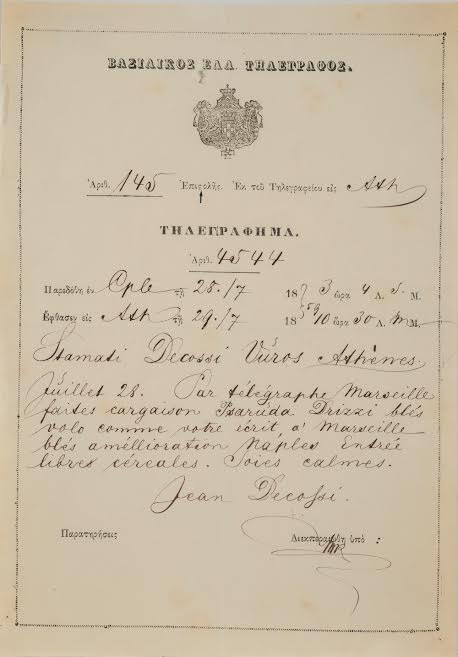 ΒΑΣΙΛΙΚΟΣ ΕΛΛ. ΤΗΛΕΓΡΑΦΟΣ.
Ἀριθ. 145 Ἐπιβολῆς. Ἐκ τοῦ Τηλεγραφείου εἰς Ath
ΤΗΛΕΓΡΑΦΗΜΑ.
Ἀριθ. 4544
Παρεδόθη ἐν Cple τῇ 28./7 18 3 ὥρα 4 Λ. s. Μ.
Ἔφθασεν εἰς Ath τῇ 29./7 1859 10 ὥρα 30 Λ. m Μ.
Stamati Decossi Vuros Athènes.
Juillet 28. Par télégraphe Marseille
faites cargaison Psaruda Drizzi blés
volo comme votre écrit, a' Marseille
blés amélioration Naples Entrée
libres céreales. Soies calmes.
Jean Decossi.
Παρατηρήσεις Διεκπεραιώθη ὑπὸ :